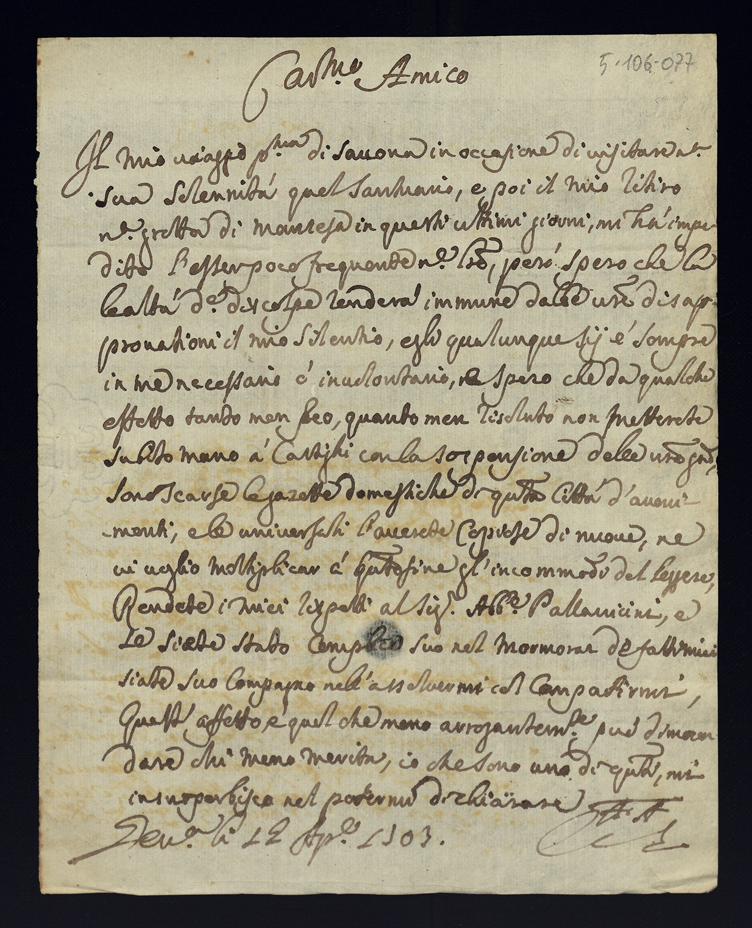 5-106-077
Car.mo Amico
Il mio viaggio p.ma di Savona in occasione di visitare n.
sua Solennitá quel Santuario, e poi il mio ritiro
n. gretta di Manresa in questi ultimi giorni, mi há impe-
dito l'esser poco frequente n.
però spero che la
lealtá de discolpe renderá immune dalle disap-
provationi il mio silentio, egli qualunque sij é sempre
in me necessario ó involontario, ne spero che da qualche
effetto tanto men reo, quanto men risoluto non metterete
subito mano á Castighi con la sospensione delle
sono scarse le gazette domestiche di questa Cittá d'aveni-
menti, e le universali l'averete Copiose di nuove, ne
vi voglio moltiplicar á questo fine gl'incommodi del leggere,
Rendete i miei rispetti al Sig. Abb.e Pallavicini, e
se siete stato Complice suo nel mormorar de fatti miei
siate suo Compagno nell'assolvermi col Compatirmi,
Quest' affetto, é quel che meno arrogantem.te può diman-
dare chi meno merita, io che sono uno di questi, mi
insuperbisco nel potermi dichiarare
Gen.a li 12 Ap.